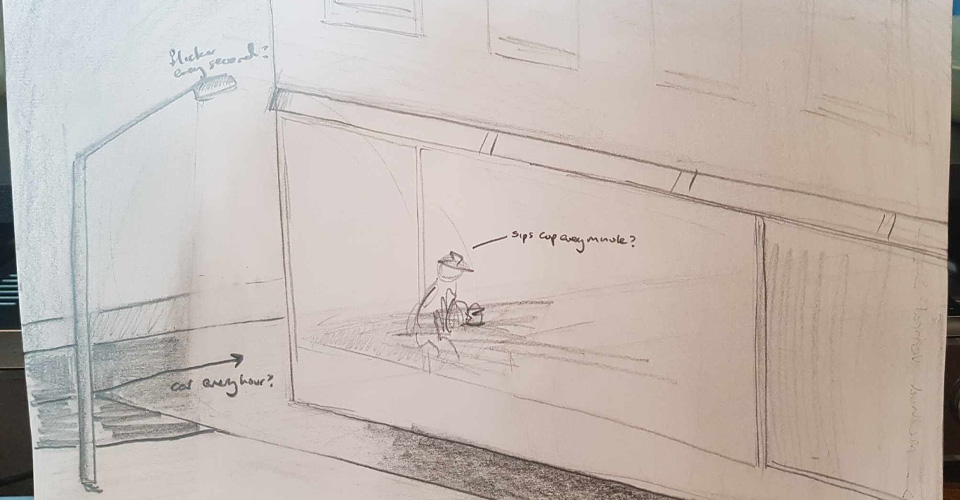 flicker
every second?
sips cup every minute?
car every hour?